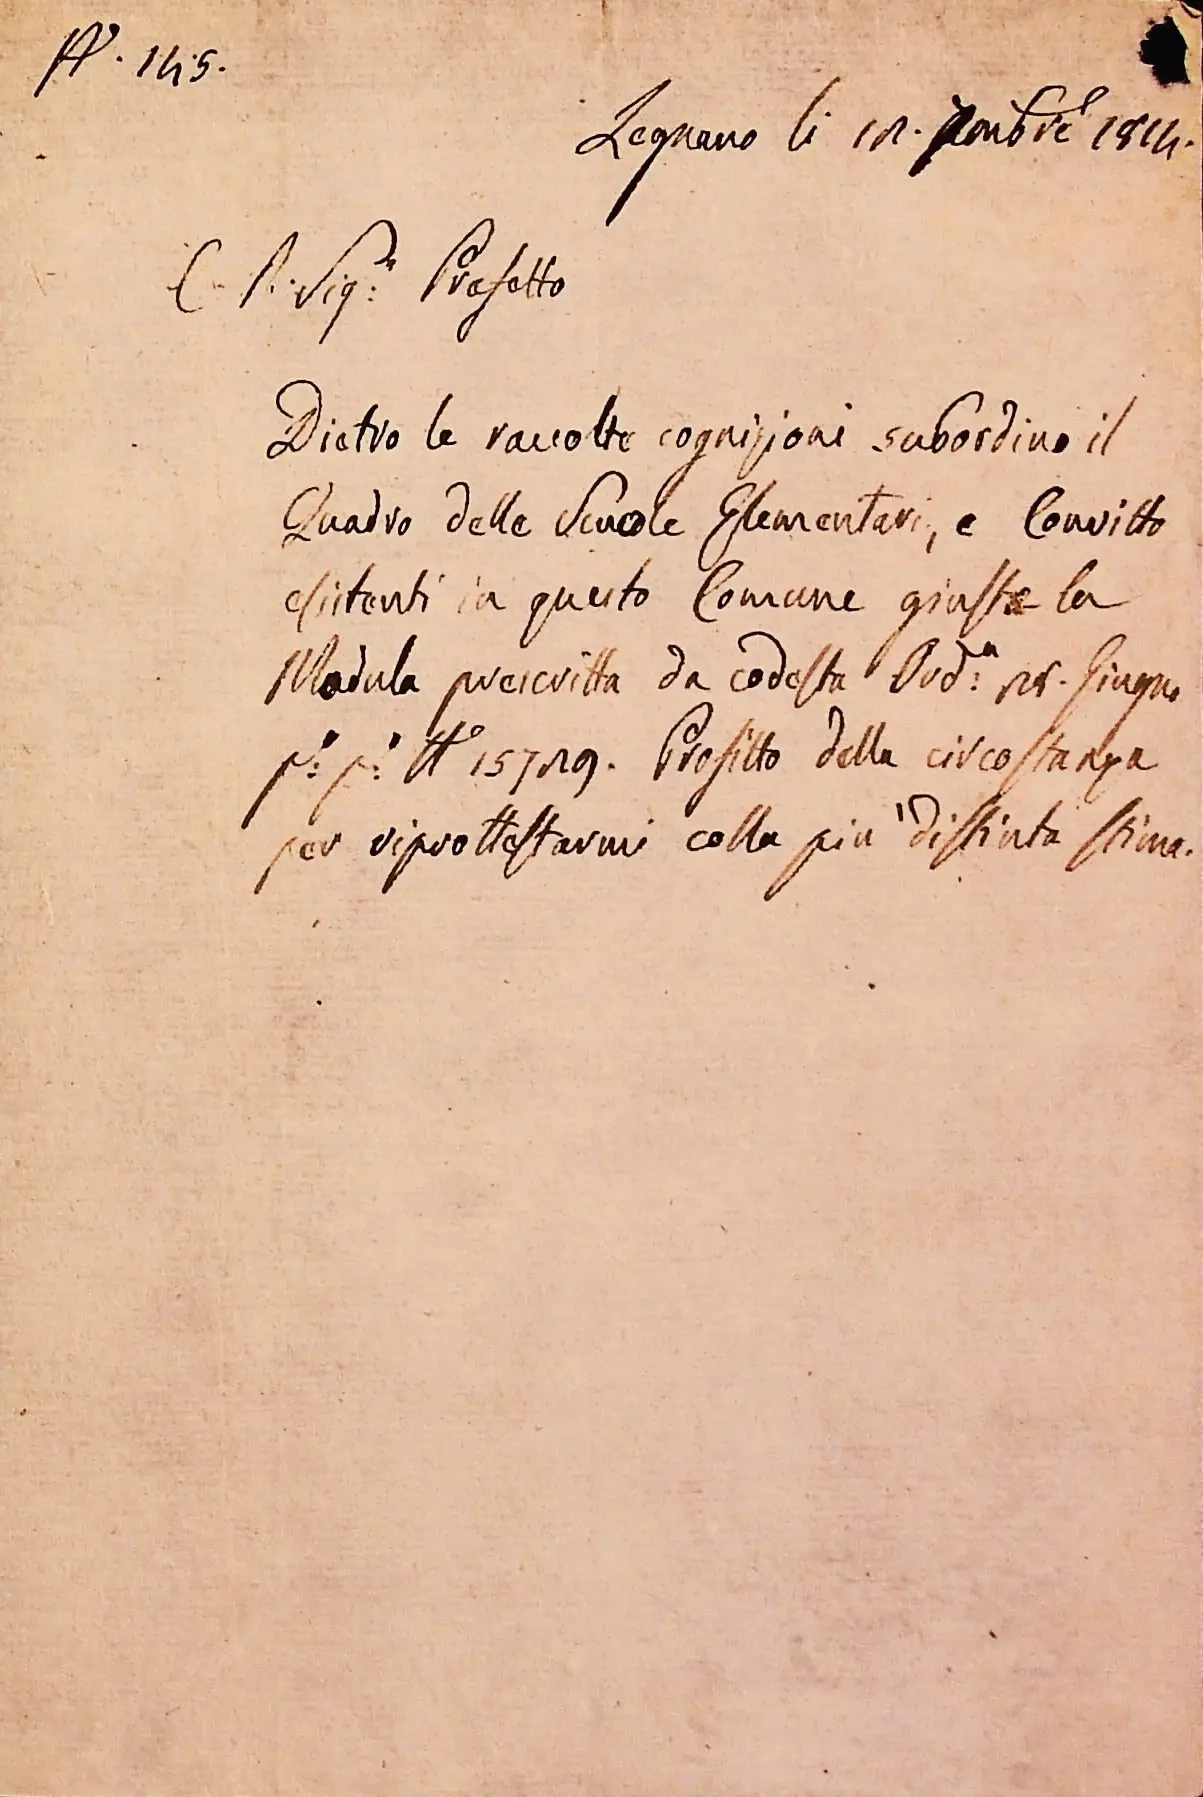 N°. 145.
Legnano li 12. 7mbre 1814.
C. R. Sigr: Prefetto
Dietro le raccolte cognizioni subordino il
Quadro delle Scuole Elementari, e Convitto
esistenti in questo Comune giusta la
Modula prescritta da codesta Orda: 28. Giugno
po: po: N° 15729. Profitto della circostanza
per riprottestarmi colla più distinta stima.